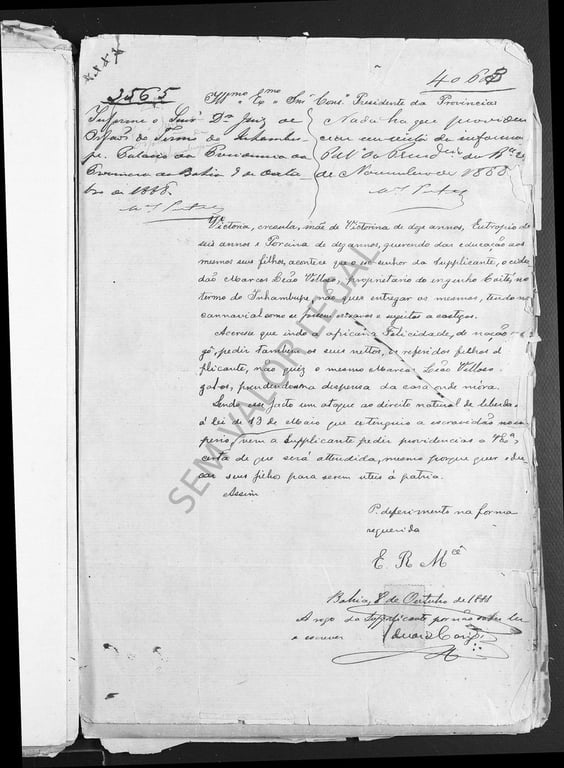 4060
2565
Illmo Exmo Snr Consro Presidente da Provincia
Informe o Snr Dr Juiz de
Orfãos do Termo de Inhambu-
pe. Palacio da Presidencia da
Provincia da Bahia 9 de Outu-
bro de 1888.
Nada ha que providen-
ciar em vista da informação
Pal. da Presid. da Ba
de Novembro de 1888
Victoria, creoula, mãe de Victorina de doze annos, Eutropio de
seis annos e Porcina de dez annos, querendo dar educação aos
mesmos seus filhos, acontece que o ex-senhor da Supplicante, o cida-
dão Marcos Leão Velloso, proprietario do engenho Coité, no
termo de Inhambupe, não quis entregar os mesmos, tendo-os no
cannavial como se fossem escravos e sujeitos a castigos.
Accresce que indo a africana Felicidade, de nação na-
gô, pedir tambem os seus nettos, os referidos filhos d
plicante, não quiz o mesmo Marcos Leão Velloso
gal-os, prendendo-a na despensa da casa onde mora.
Sendo esse facto um ataque ao direito natural de liberda-
á lei de 13 de Maio que extinguio a escravidão no
perio, vem a Supplicante pedir providencias a V. Exa
certa de que será attendida, mesmo porque quer edu-
car seus filhos para serem uteis á patria.
Assim
P. deferimento na forma
requerida
E. R. Mce
Bahia, 8 de Outubro de 1888
A rogo da Supplicante por não saber ler
e escrever
SEM VALOR LEGAL